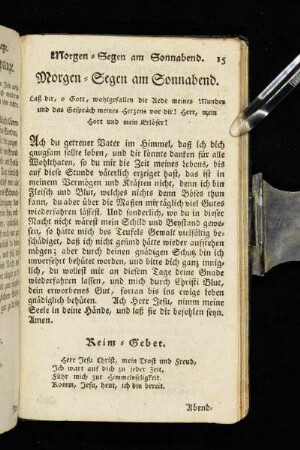 Morgen-Segen am Sonnabend. 15
Morgen-Segen am Sonnabend.
Laß dir, o Gott, wohlgefallen die Rede meines Mundes
und das Gespräch meines Herzens vor dir! Herr, mein
Hort und mein Erlöser!
Ach du getreuer Vater im Himmel, daß ich dich
gnugsam sollte loben, und dir könnte danken für alle
Wohlthaten, so du mir die Zeit meines Lebens, bis
auf diese Stunde väterlich erzeiget hast, das ist in
meinem Vermögen und Kräften nicht, denn ich bin
Fleisch und Blut, welches nichts denn Böses thun
kann, du aber über die Maßen mir täglich viel Gutes
wiederfahren lässest. Und sonderlich, wo du in dieser
Nacht nicht wärest mein Schild und Beystand gewe-
sen, so hätte mich des Teufels Gewalt vielfältig be-
schädiget, daß ich nicht gesund hätte wieder aufstehen
mögen; aber durch deinen gnädigen Schutz bin ich
unversehrt behütet worden, und bitte dich ganz innig-
lich, du wollest mir an diesem Tage deine Gnade
wiederfahren lassen, und mich durch Christi Blut,
dein erworbenes Gut, fortan bis ins ewige leben
gnädiglich behüten. Ach Herr Jesu, nimm meine
Seele in deine Hände, und laß sie dir befohlen seyn.
Amen.
Reim-Gebet.
Herr Jesu Christ, mein Trost und Freud,
Ich wart auf dich zu jeder Zeit,
Führ mich zur Himmelsseligkeit.
Komm, Jesu, heut, ich bin bereit.
Abend-